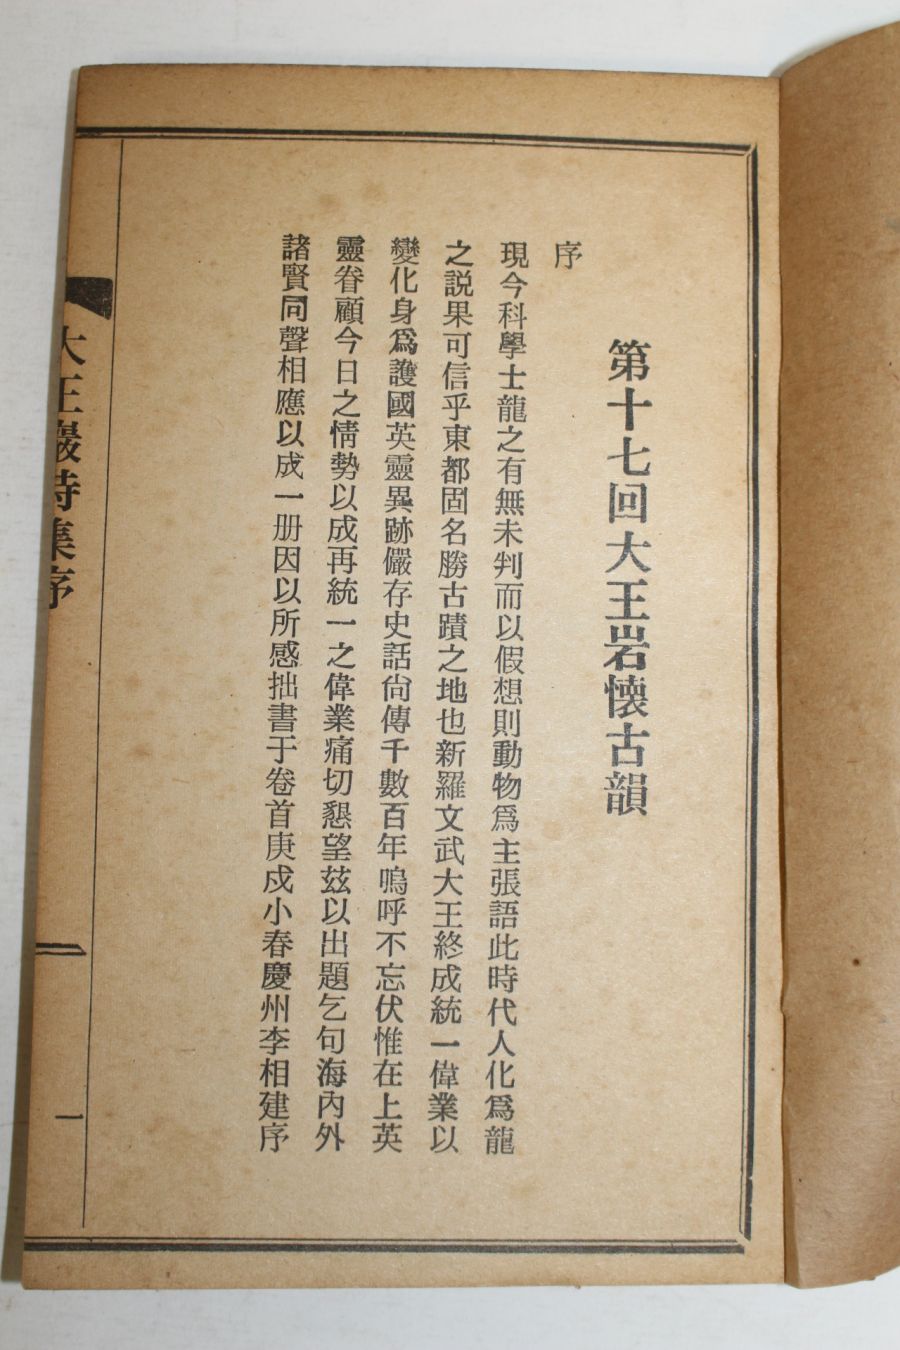 第十七回大王岩懷古韻
序
現今科學士龍之有無未判而以假想則動物爲主張語此時代人化爲龍
之説果可信乎東都固名勝古蹟之地也新羅文武大王終成統一偉業以
變化身爲護國英靈異跡儼存史話尙傳千數百年嗚呼不忘伏惟在上英
靈眷顧今日之情勢以成再統一之偉業痛切懇望玆以出題乞句海內外
諸賢同聲相應以成一册因以所感拙書于卷首庚戍小春慶州李相建序
大王巖詩集序
一